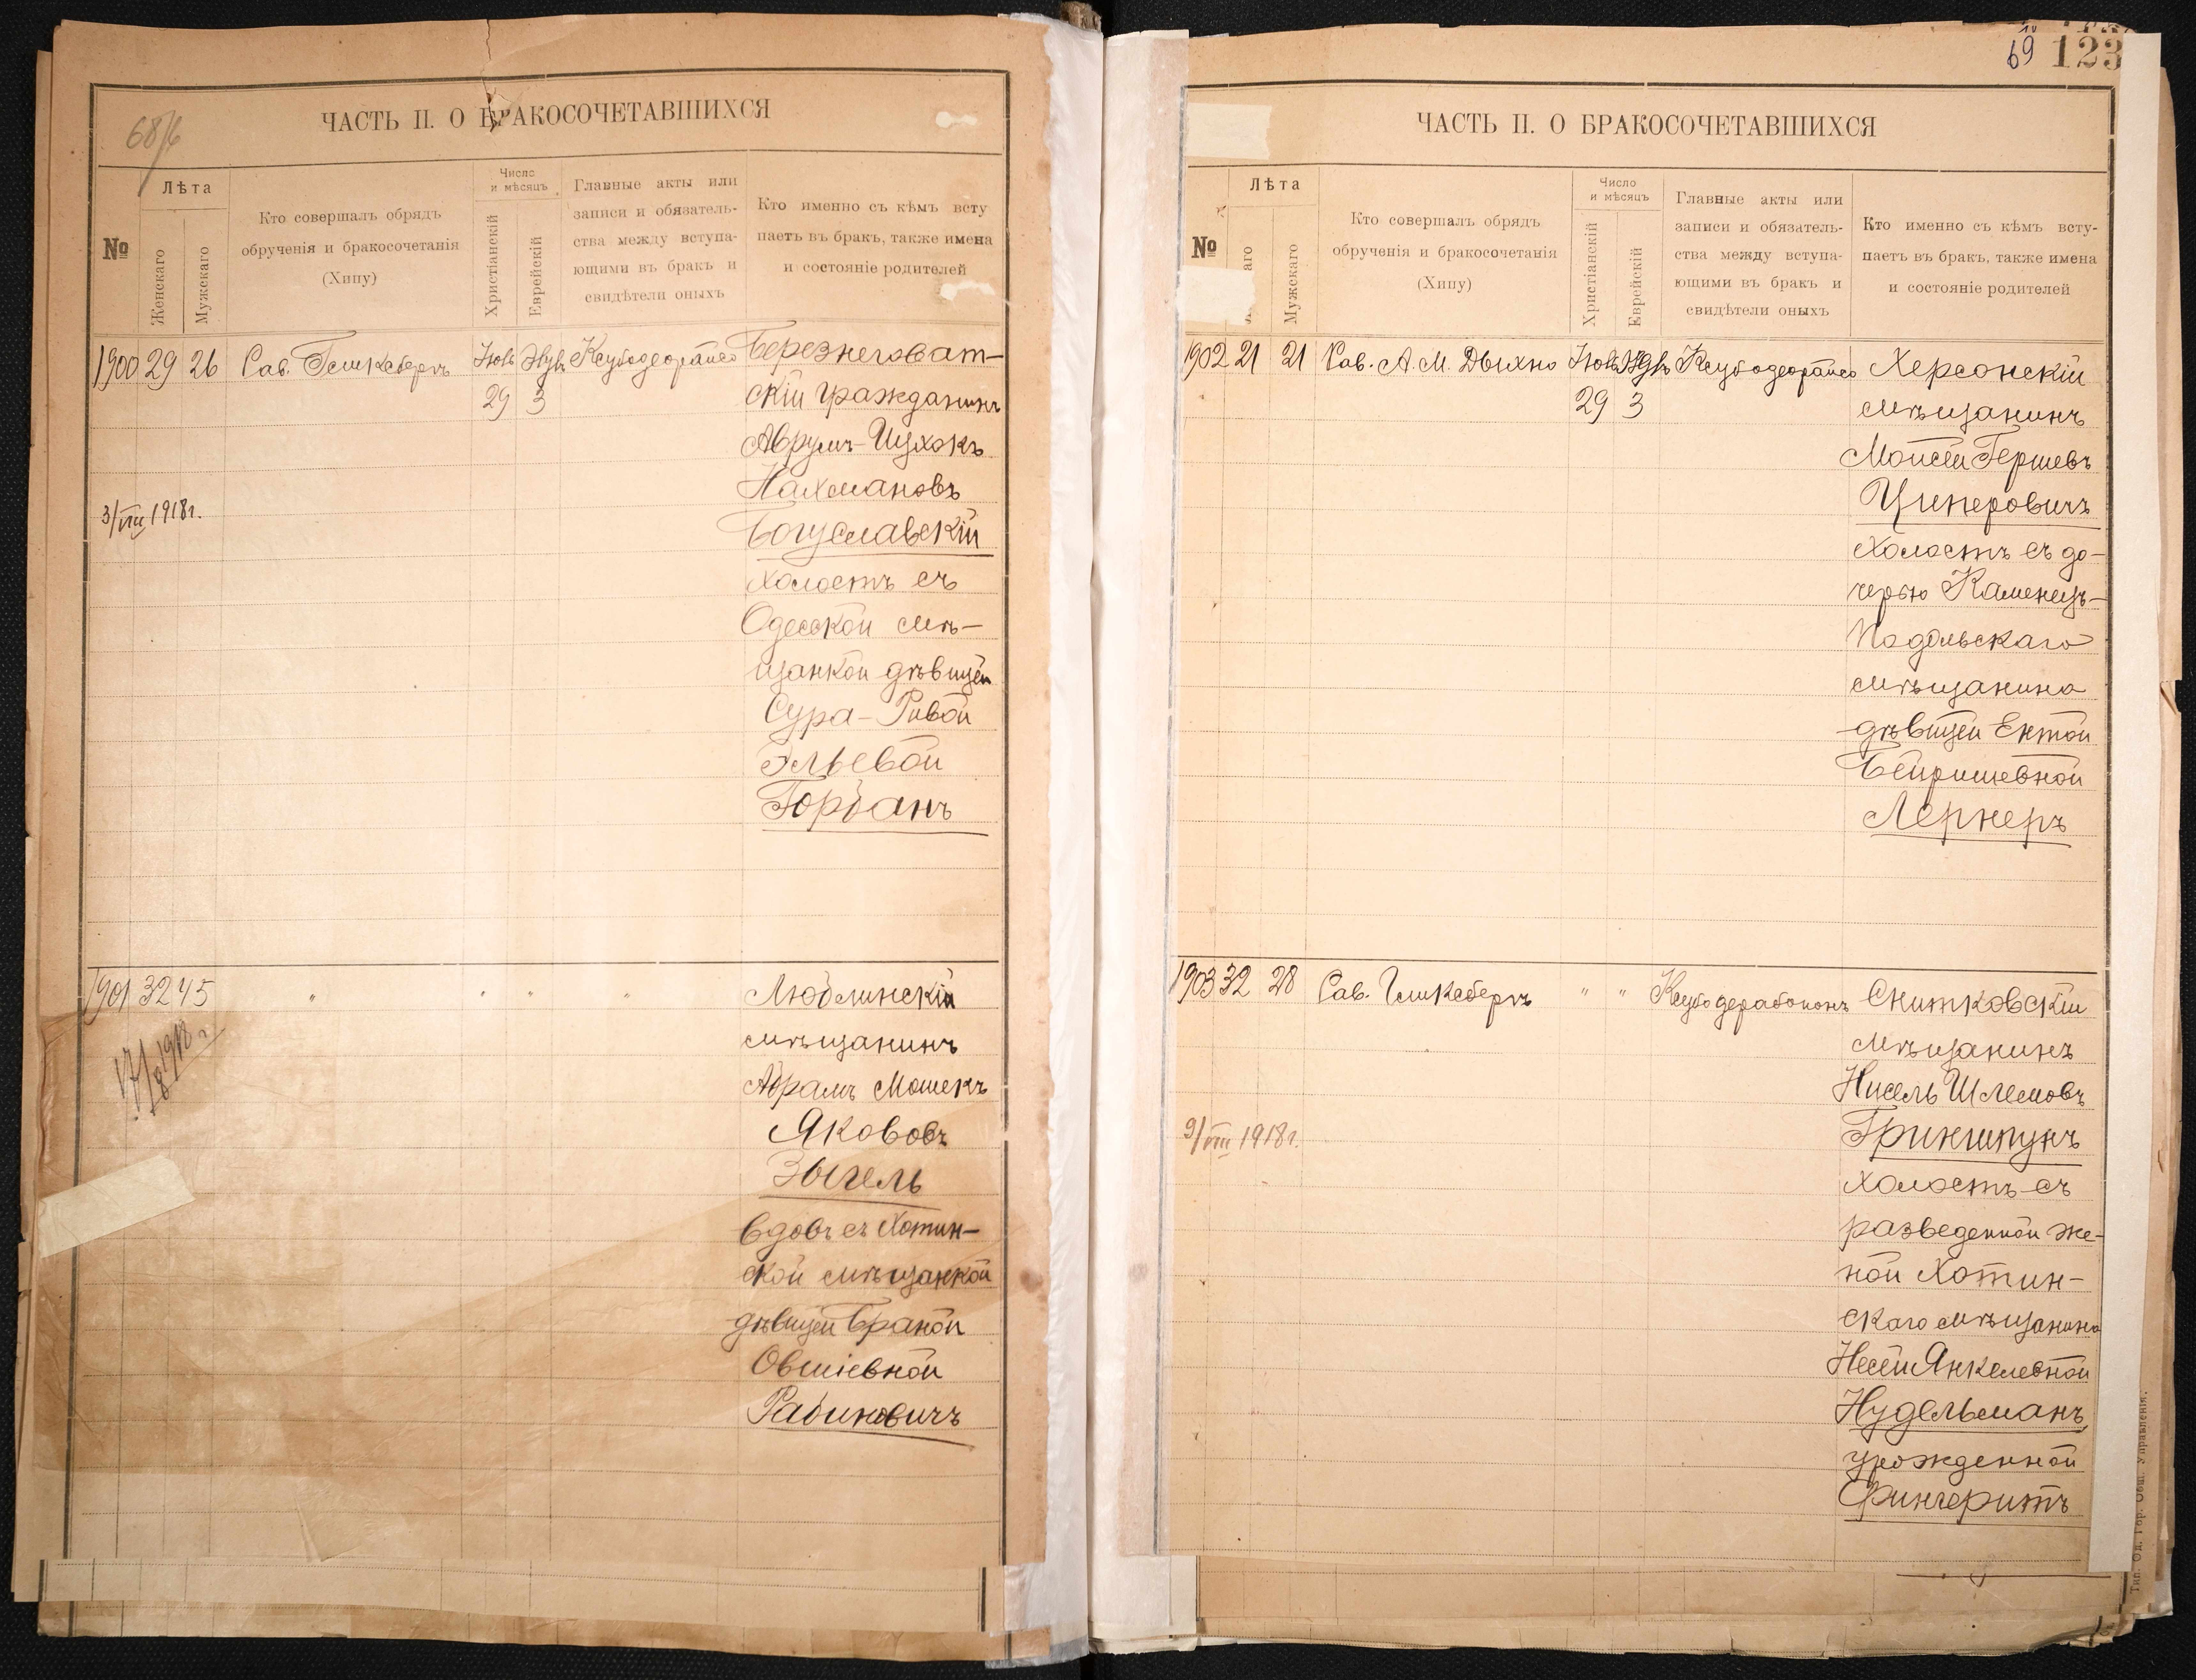 68/6
ЧАСТЬ II. О БРАКОСОЧЕТАВШИХСЯ
№
Лѣта
Женскаго
Мужскаго
Кто совершалъ обрядъ
обрученія и бракосочетанія
(Хипу)
Число
и мѣсяцъ
Христіанскій
Еврейскій
Главные акты или
записи и обязатель-
ства между вступа-
ющими въ бракъ и
свидѣтели оныхъ
Кто именно съ кѣмъ всту
паетъ въ бракъ, также имена
и состояніе родителей
1900 29 26 Рав. Гликсбергъ Іюль Ксубодеорайсо Березнеговат-
29 3 скій гражданинъ
Аврумъ-Ицхокъ
Нахмановъ
3/VIII 1918 г.
Богуславскій
холостъ съ
Одесской мѣ-
щанкой дѣвицей
Сура-Ривой
Эльевой
Горбанъ
1901 32 45 " " " " Люблинскій
мѣщанинъ
17/8 1918 г.
Абрамъ Мошекъ
Якововъ
Зыгель
вдовъ съ Хотин-
ской мѣщанкой
дѣвицей Браной
Овшіевной
Рабиновичъ
69
123
ЧАСТЬ II. О БРАКОСОЧЕТАВШИХСЯ
№
Лѣта
аго
Мужскаго
Кто совершалъ обрядъ
обрученія и бракосочетанія
(Хипу)
Число
и мѣсяцъ
Христіанскій
Еврейскій
Главные акты или
записи и обязатель-
ства между вступа-
ющими въ бракъ и
свидѣтели оныхъ
Кто именно съ кѣмъ всту-
паетъ въ бракъ, также имена
и состояніе родителей
1902 21 21 Рав. А. М. Дыхно Іюль Ксубодеорайсо Херсонскій
29 3 мѣщанинъ
Мойсей Гершевъ
Циперовичъ
холостъ съ до-
черью Каменецъ-
Подольскаго
мѣщанина
дѣвицей Ентой
Бейришевной
Лернеръ
1903 32 28 Рав. Гликсбергъ " " Ксубодерабононъ Снитковскій
мѣщанинъ
Нисель Шлемовъ
9/VIII 1918 г.
Гриншпунъ
холостъ съ
разведенной же-
ной Хотин-
скаго мѣщанина
Несей Янкелевной
Нудельманъ,
урожденной
Фингеритъ
Тип. Од. Гор. Общ. Управленія.